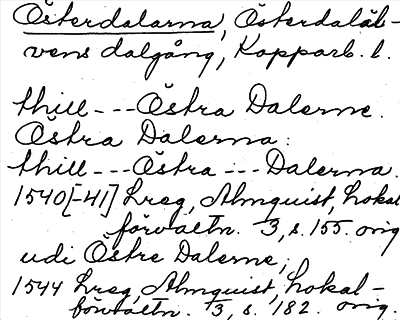 Österdalarna, Österdaläl-
vens dalgång, Kopparb. l.
thill---Östra Dalerne.
Östra Dalerna:
thill---Östra---Dalerna.
1540[-41] Lreg, Almquist, Lokal
förvaltn. 3, s. 155. orig
udi Östre Dalerne,
1544 Lreg, Almquist, Lokal-
förvaltn. 3, s. 182. orig.